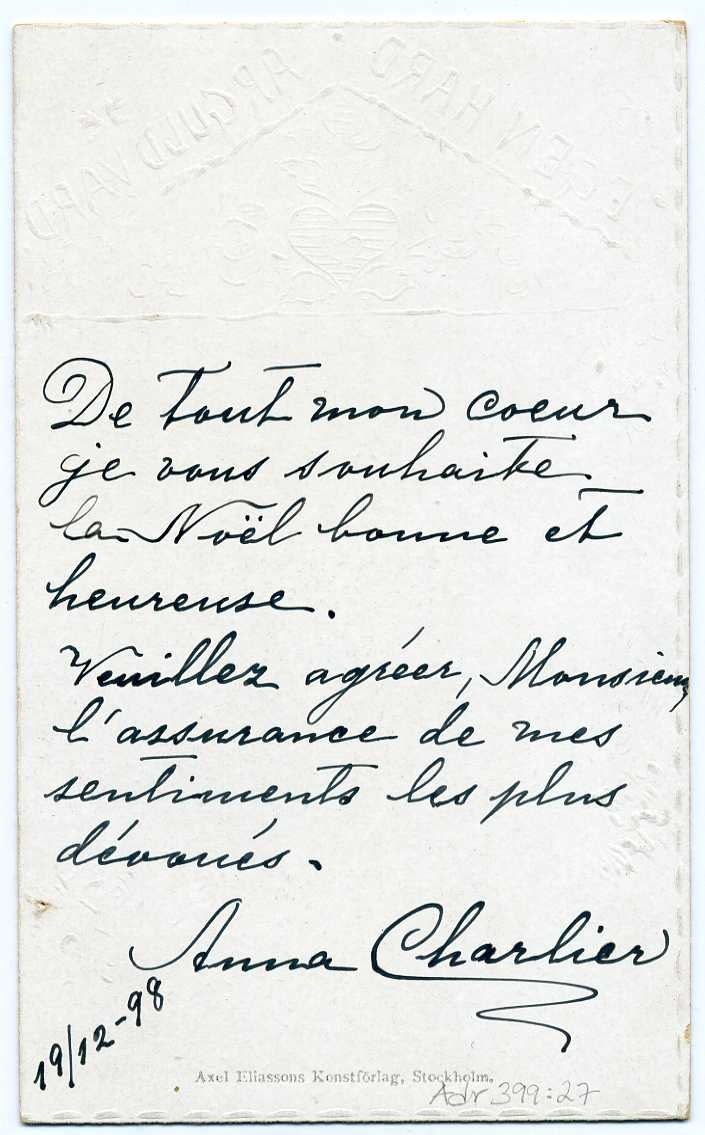 EGEN HÄRD ÄR GULD VÄRD
De tout mon coeur
je vous souhaite
la Noël bonne et
heureuse.
Veuillez agréer, Monsieur,
l'assurance de mes
sentiments les plus
dévoués.
Anna Charlier
19/12-98
Axel Eliassons Konstförlag, Stockholm.
Adr. 399:27